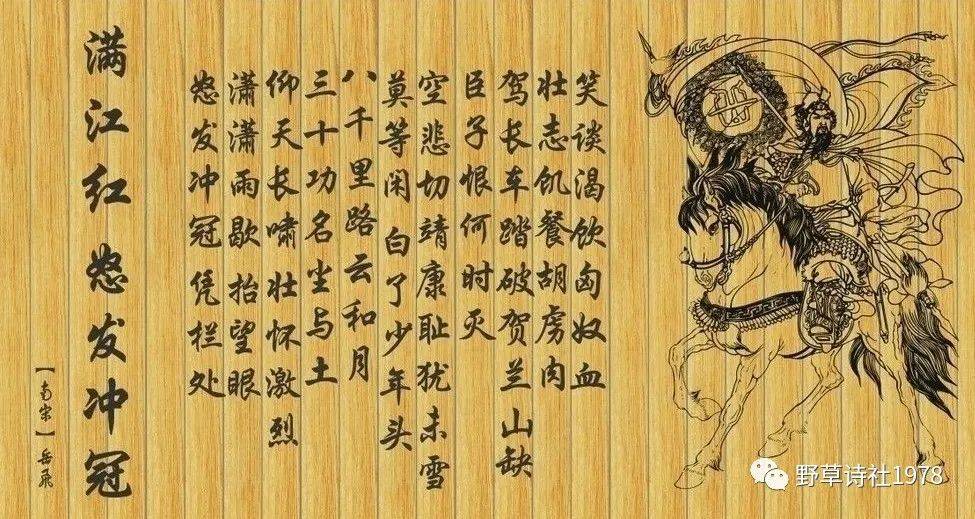 满江红 怒发冲冠
【南宋】岳飞
怒发冲冠凭栏处
潇潇雨歇 抬望眼
仰天长啸壮怀激烈
三十功名尘与土
八千里路云和月
莫等闲 白了少年头
空悲切靖康耻犹未雪
臣子恨何时灭
驾长车踏破贺兰山缺
壮志饥餐胡虏肉
笑谈渴饮匈奴血
野草诗社1978